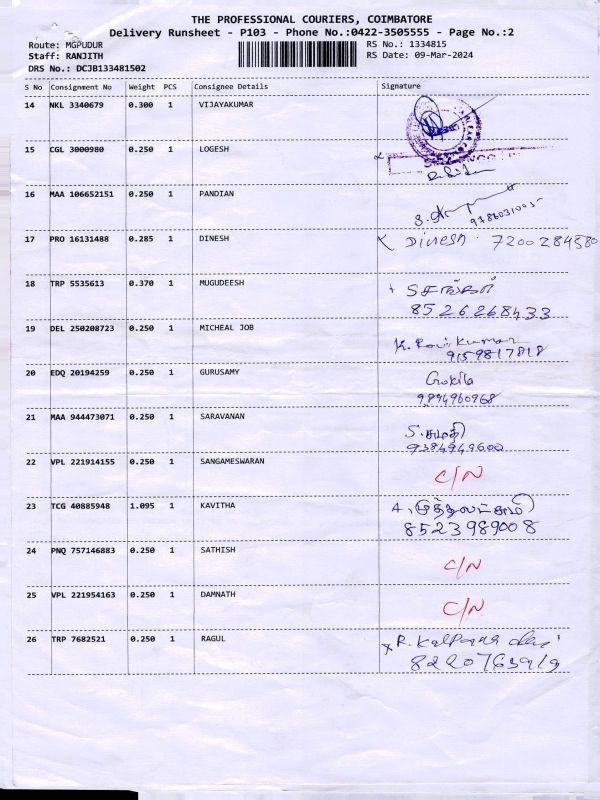 THE PROFESSIONAL COURIERS, COIMBATORE
Delivery Runsheet - P103 - Phone No.:0422-3505555 - Page No.:2
Route: MGPUDUR RS No.: 1334815
Staff: RANJITH RS Date: 09-Mar-2024
DRS No.: DCJB133481502
S No Consignment No Weight PCS Consignee Details Signature
14 NKL 3340679 0.300 1 VIJAYAKUMAR
15 CGL 3000980 0.250 1 LOGESH
16 MAA 106652151 0.250 1 PANDIAN
17 PRO 16131488 0.285 1 DINESH Dinesh 7200284580
18 TRP 5535613 0.370 1 MUGUDEESH
8526268433
19 DEL 250208723 0.250 1 MICHEAL JOB K. Ravi Kumar
9159817818
20 EDQ 20194259 0.250 1 GURUSAMY Gokila
9894960968
21 MAA 944473071 0.250 1 SARAVANAN S. சுமதி
9384949600
22 VPL 221914155 0.250 1 SANGAMESWARAN C/N
23 TCG 40885948 1.095 1 KAVITHA
8523989008
24 PNQ 757146883 0.250 1 SATHISH C/N
25 VPL 221954163 0.250 1 DAMNATH C/N
26 TRP 7682521 0.250 1 RAGUL R. Kalpana devi